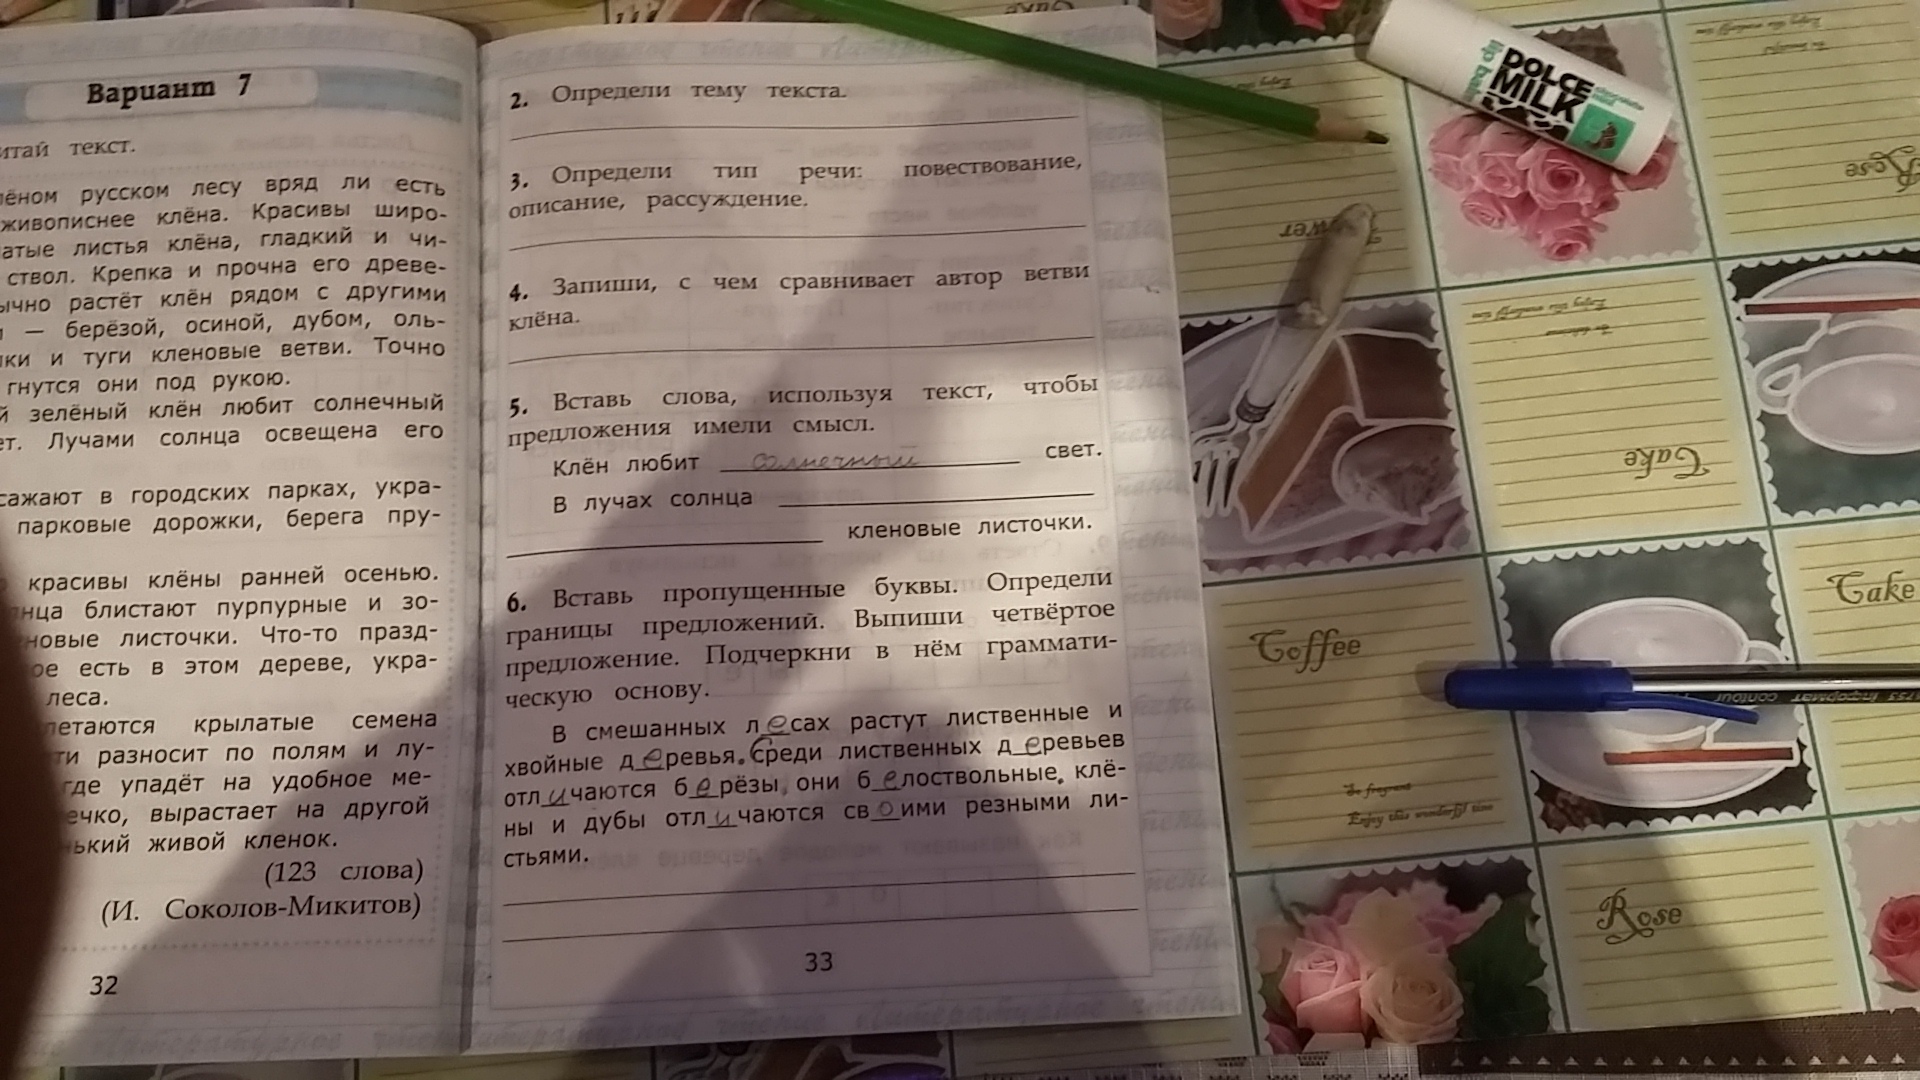 Вариант 7
итай текст.
лёном русском лесу вряд ли есть
живописнее клёна. Красивы широ-
атые листья клёна, гладкий и чи-
ствол. Крепка и прочна его древе-
ычно растёт клён рядом с другими
— берёзой, осиной, дубом, оль-
ки и туги кленовые ветви. Точно
гнутся они под рукою.
й зелёный клён любит солнечный
ет. Лучами солнца освещена его
сажают в городских парках, укра-
парковые дорожки, берега пру-
красивы клёны ранней осенью.
нца блистают пурпурные и зо-
новые листочки. Что-то празд-
ое есть в этом дереве, укра-
леса.
летаются крылатые семена
ти разносит по полям и лу-
где упадёт на удобное ме-
ечко, вырастает на другой
нький живой кленок.
(123 слова)
(И. Соколов-Микитов)
32
2. Определи тему текста.
3. Определи тип речи: повествование,
описание, рассуждение.
4. Запиши, с чем сравнивает автор ветви
клёна.
5. Вставь слова, используя текст, чтобы
предложения имели смысл.
Клён любит солнечный свет.
В лучах солнца
кленовые листочки.
6. Вставь пропущенные буквы. Определи
границы предложений. Выпиши четвёртое
предложение. Подчеркни в нём граммати-
ческую основу.
В смешанных лесах растут лиственные и
хвойные деревья. Среди лиственных деревьев
отличаются берёзы, они белоствольные. клё-
ны и дубы отличаются своими резными ли-
стьями.
33
DOLCE
MILK
lip balm
Rose
Flower
Cake
Coffee
Enjoy this wonderful time
Cake
Rose